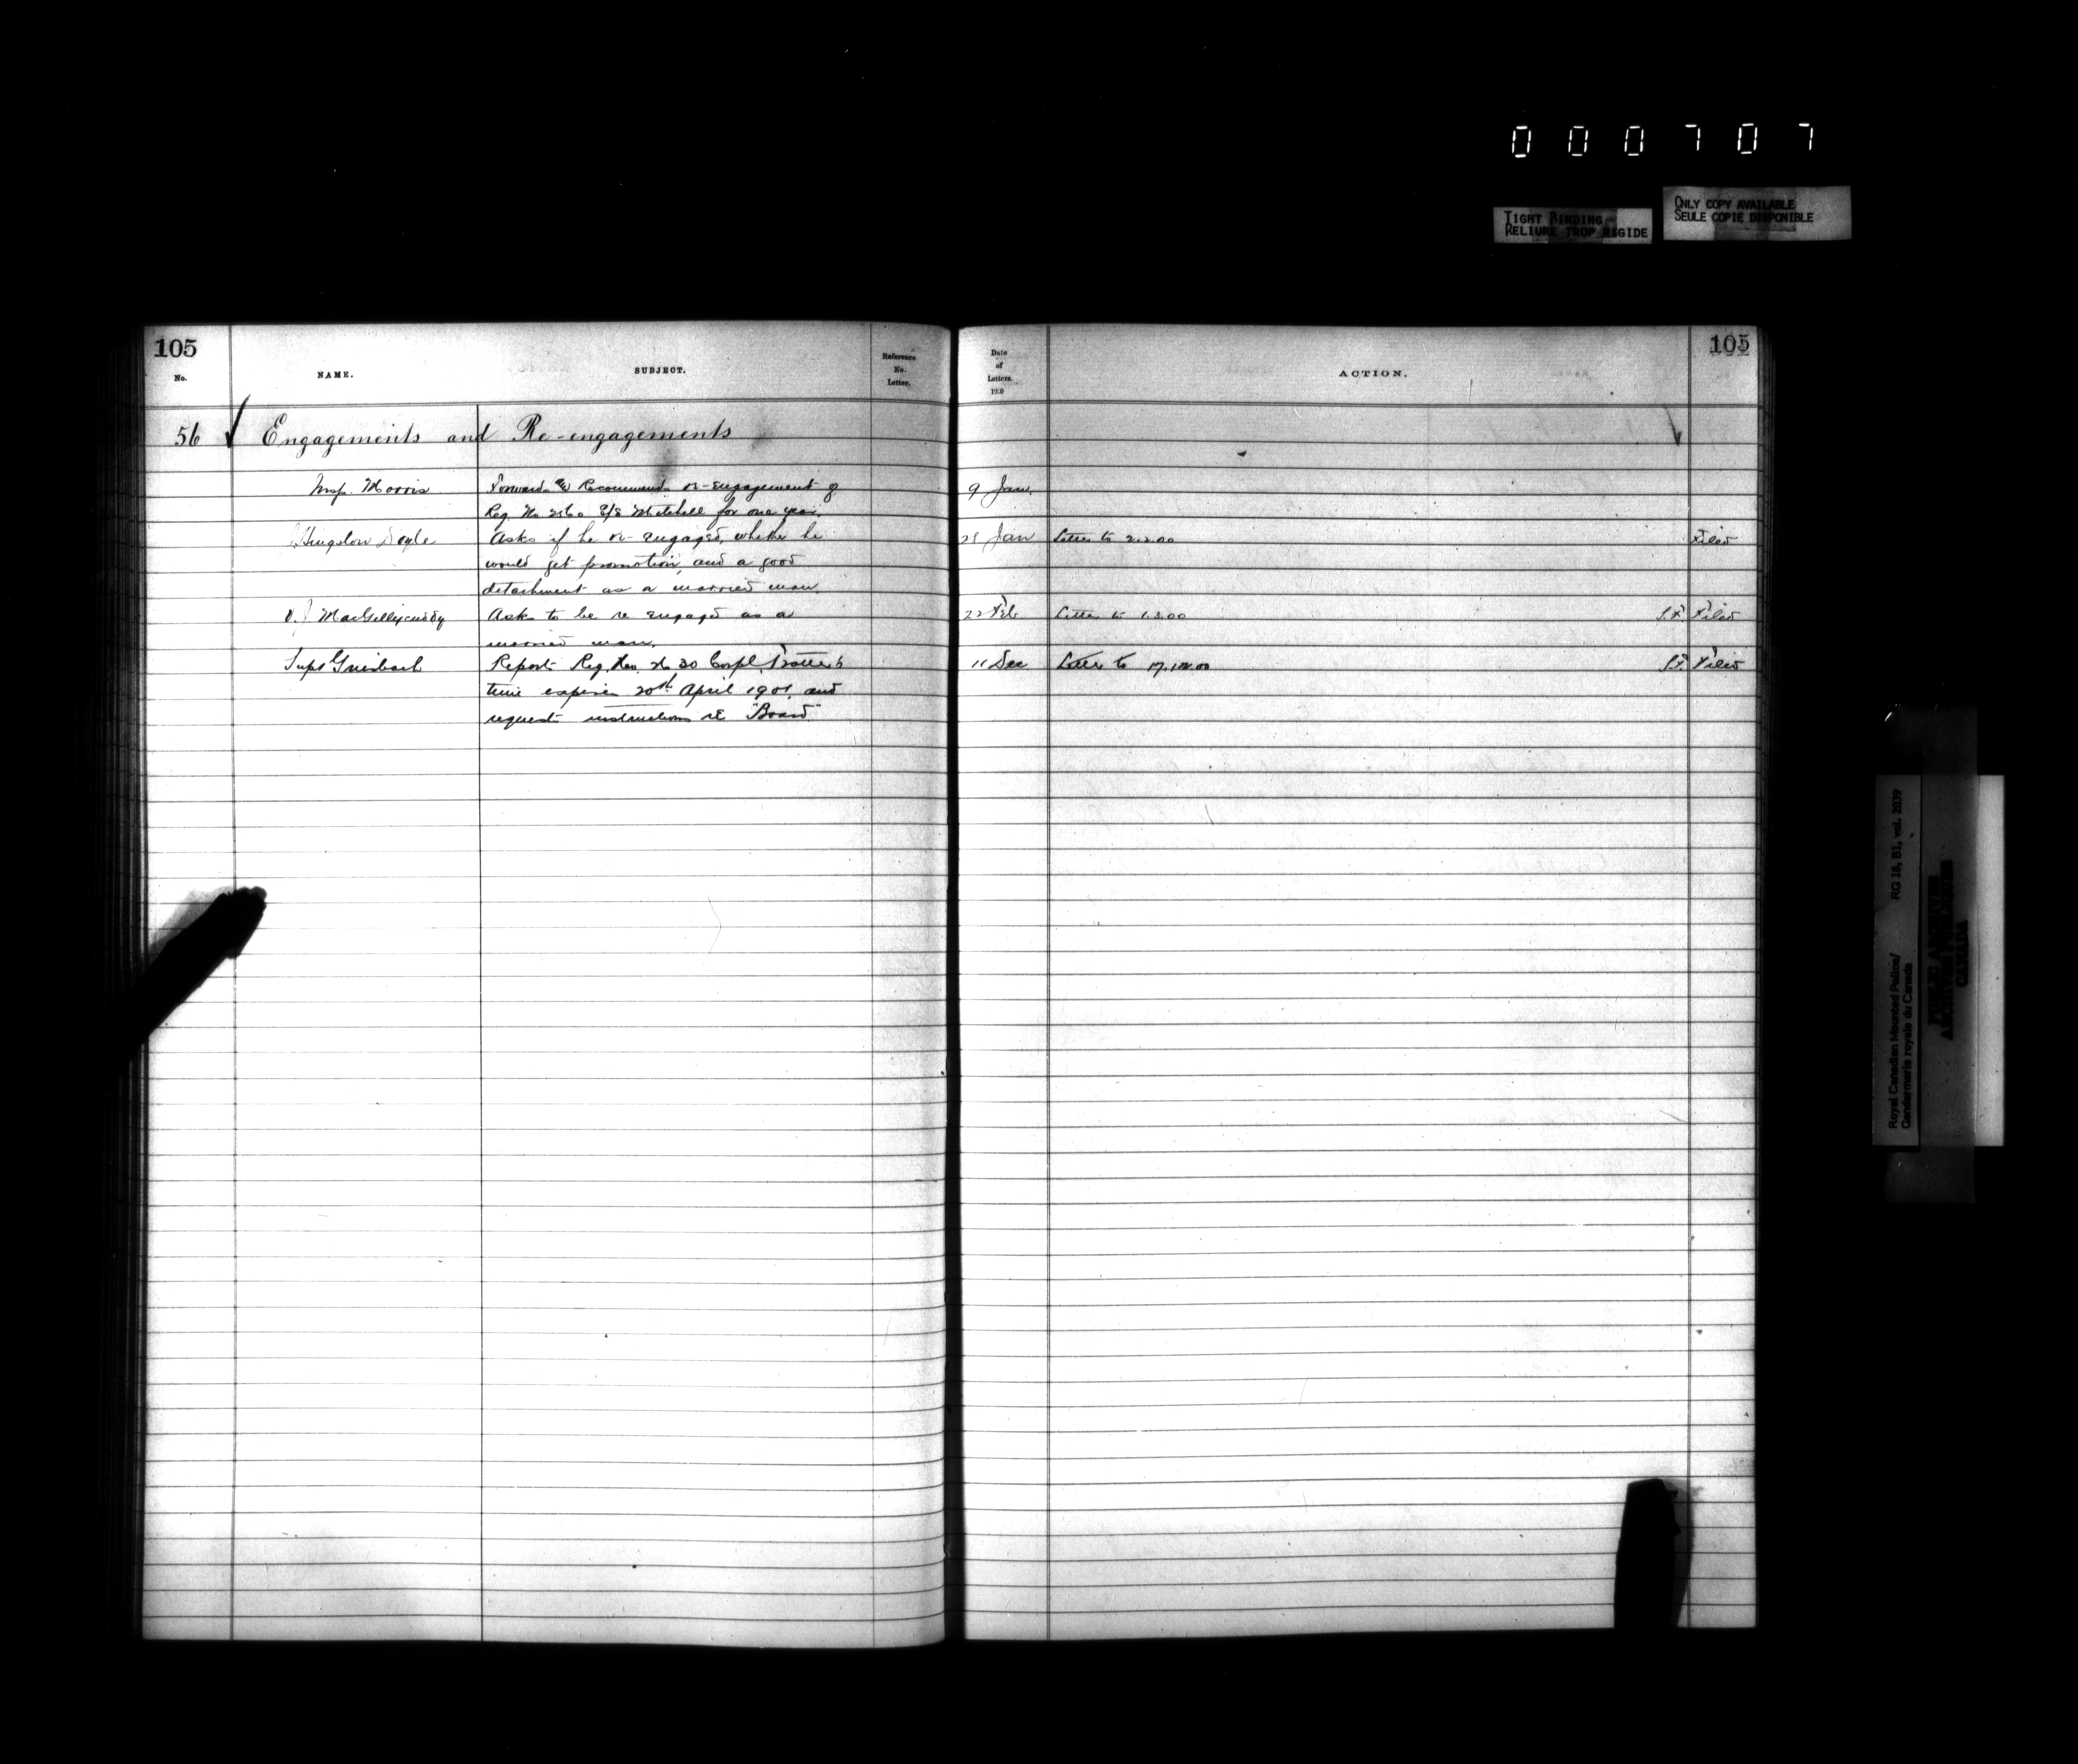 000707
TIGHT BINDING
RELIURE TROP RIGIDE
ONLY COPY AVAILABLE
SEULE COPIE DISPONIBLE
105
No.
NAME.
SUBJECT.
Reference
No.
Letter.
Date
of
Letters.
190
ACTION.
105
56 Engagements and Re-engagements
Insp. Morris Forwards & Recommends re-engagement of 9 Jan.
Reg. No S/S Mitchell for one year.
Hingston Doyle Asks if he re-engaged, whether he Jan Letter to 2.2.00 Filed
would get promotion, and a good
detachment as a married man.
MacGillycuddy Asks to be re engaged as a 22 Feb Letter to 1.3.00 S.F. Filed
married man.
Supt Griesbach Reports Reg. No. Corpl. 11 Dec Letter to 17.12.00 S.F. Filed
time expires 20th April 1901, and
requests instructions re "Board"
Royal Canadian Mounted Police/
Gendarmerie royale du Canada
RG 18, B1, vol. 2039
PUBLIC ARCHIVES
ARCHIVES PUBLIQUES
CANADA